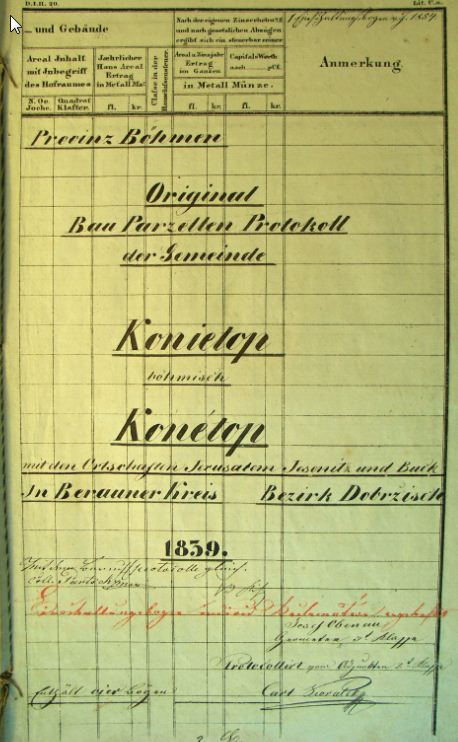 D.I.H. 20.
Lit. C.a.
1 Einschaltungsbogen v. J. 1857.
... und Gebäude
Nach der eigenen Zinserhebung
und nach gesetzlichen Abzügen
ergibt sich ein steuerbarer
Anmerkung
Areal Inhalt
mit Inbegriff
des Hofraumes
Jæhrlicher
Haus Areal
Ertrag
in Metall Mü
Classe in der
Areal u. Zinsjahr
Ertrag
im Ganzen
Capitals Werth
nach pCt.
in Metall Münze.
N. Oe. Joche.
Quadrat Klafter.
fl. kr. fl. kr. fl. kr.
Provinz Böhmen
Original
Bau Parzellen Protokoll
der Gemeinde
Konietop
böhmisch
Konĕtop
mit den Ortschaften Jerusalem Jesenitz und Buck
In Berauner Kreis Bezirk Dobrzisch
1839.
Einschaltungsbogen
Josef
Geometer 3r Klasse
Protocollirt vom Adjunkten 2r Klasse
Enthält vier Bögen
Carl